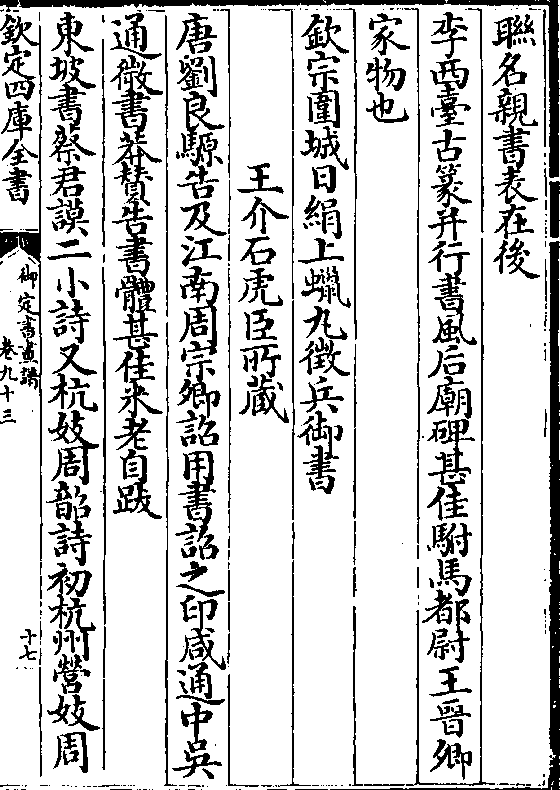 聯名親書表在後
李西臺古篆并行書風后廟碑甚佳駙馬都尉王晉卿
家物也
欽宗圍城日絹上蠟丸徴兵御書
王介石虎臣所藏
唐劉良驃告及江南周宗卿詔用書詔之印咸通中吳
通微書莽賛告書體甚佳米老自跋
東坡書蔡君謨二小詩又杭妓周韶詩初杭州營妓周
欽定四庫全書
御定書畫譜
卷九十三
十七